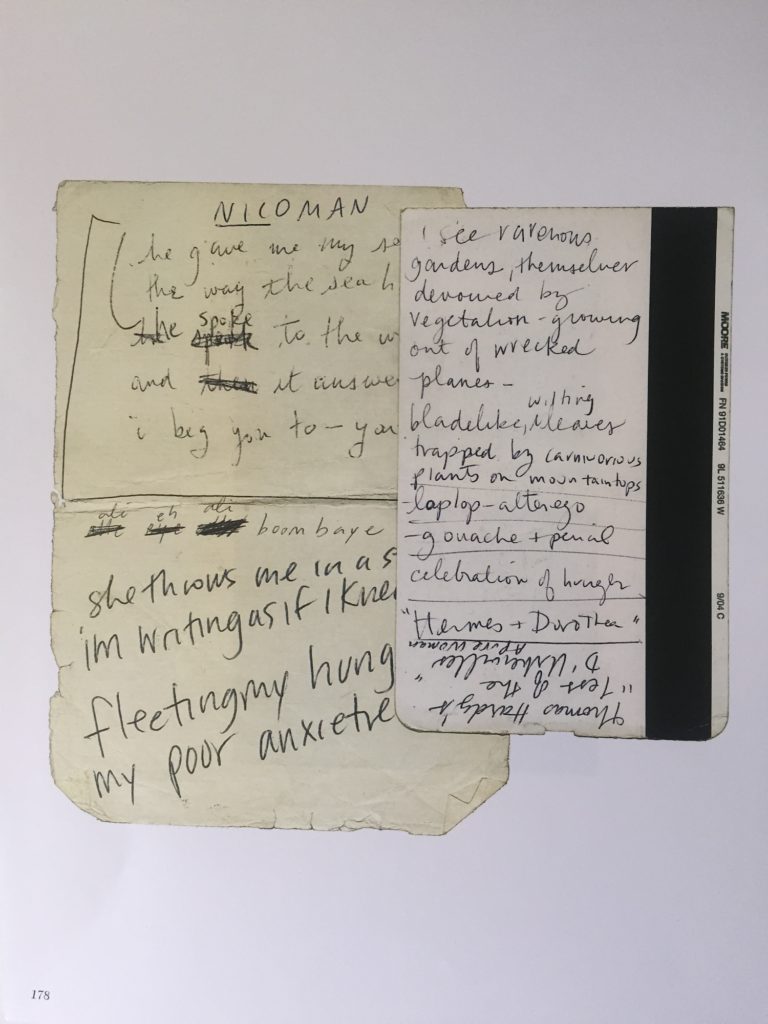 NICOMAN
he gave me my se
the way the sea h
the spoke to the w
and then it answe
i beg you to - you
ali eh ali boombaye
she throws me in a s
im writing as if i knew
fleetingmy hung
my poor anxietie
i see ravenous
gardens, themselves
devoured by
vegetation - growing
out of wrecked
planes -
wilting
bladelike, leaves
trapped by carnivorious
plants on mountaintops
-laptop-alterego
-gouache + pencil
celebration of hunger
"Hermes + Dorothea"
Thomas Hardy's
"Tess of the
D'Urbervilles"
A Pure Woman
MOORE FN 91D01464 9L 511636 W 9/04 C
178